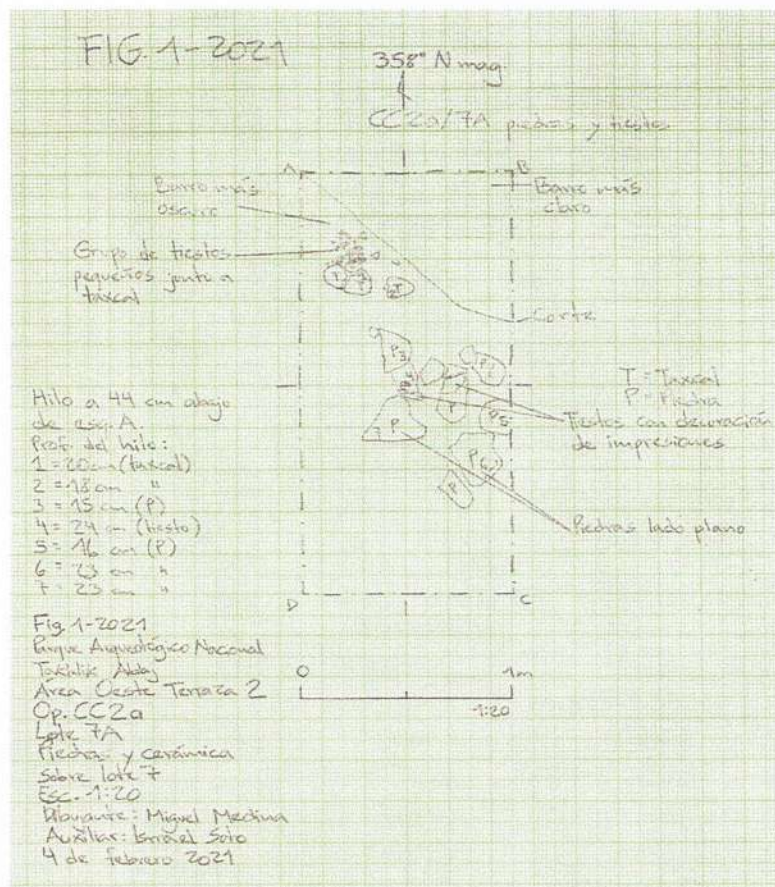 FIG. 1-2021
358° N mag.
CC2a/7A piedras y tiestos
A
B
Barro más
oscuro
Barro más
claro
Grupo de tiestos
pequeños junto a
taxcal
T
T
T
Corte
P3
P
T
P5
7 P
P6
P
T = Taxcal
P = Piedra
Tiestos con decoración
de impresiones
Piedras lado plano
Hilo a 44 cm abajo
de esq. A.
Prof. del hilo:
1 = 20 cm (taxcal)
2 = 18 cm "
3 = 15 cm (P)
4 = 24 cm (tiesto)
5 = 16 cm (P)
6 = 23 cm "
7 = 23 cm "
D
C
Fig 1-2021
Parque Arqueológico Nacional
Tak'alik Ab'aj
Área Oeste Terraza 2
Op. CC2a
Lote 7A
Piedras y cerámica
sobre lote 7
Esc. 1:20
Dibujante: Miguel Medina
Auxiliar: Ismael Soto
4 de febrero 2021
0
1m
1:20